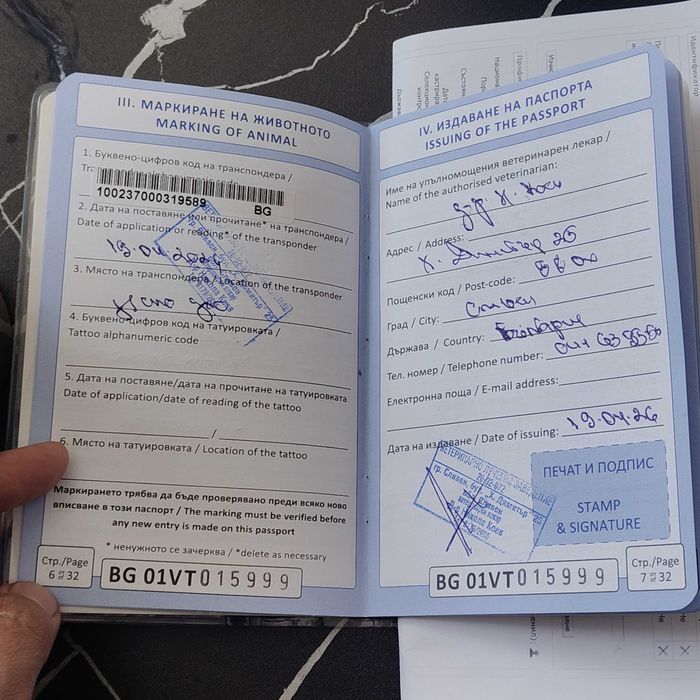 III. МАРКИРАНЕ НА ЖИВОТНОТО
MARKING OF ANIMAL
1. Буквено-цифров код на транспондера /
100237000319589
BG
2. Дата на поставяне или прочитане* на транспондера /
Date of application or reading* of the transponder
3. Място на транспондера / Location of the transponder
4. Буквено-цифров код на татуировката /
Tattoo alphanumeric code
5. Дата на поставяне/дата на прочитане на татуировката
Date of application/date of reading of the tattoo
/
6. Място на татуировката / Location of the tattoo
Маркирането трябва да бъде проверявано преди всяко ново
вписване в този паспорт / The marking must be verified before
any new entry is made on this passport
* ненужното се зачерква / *delete as necessary
Стр./Page
6 от/of 32
BG 01VT 015999
IV. ИЗДАВАНЕ НА ПАСПОРТА
ISSUING OF THE PASSPORT
Име на упълномощения ветеринарен лекар /
Name of the authorised veterinarian:
Адрес / Address:
Пощенски код / Post-code: 8800
Град / City: Сливен
Държава / Country: България
Тел. номер / Telephone number:
Електронна поща / E-mail address:
Дата на издаване / Date of issuing:
гр. Сливен, бул. "Х. Димитър" 25
ПЕЧАТ И ПОДПИС
STAMP
& SIGNATURE
Стр./Page
7 от/of 32
BG 01VT 015999